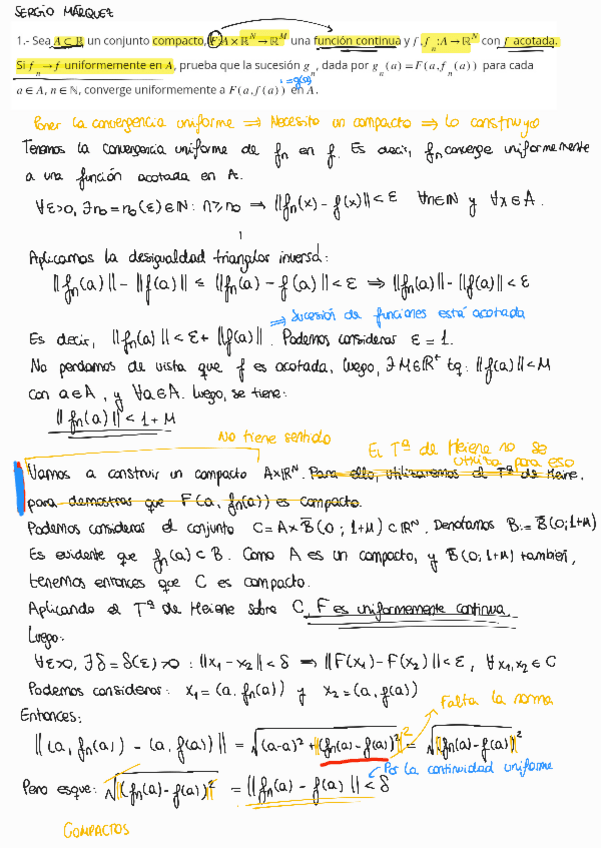 SERGIO MÁRQUEZ
1.- Sea A ⊂ ℝ un conjunto compacto, F:A×ℝ^N→ℝ^M una función continua y f, f_n:A→ℝ^N con f acotada.
Si f_n→f uniformemente en A, prueba que la sucesión g_n, dada por g_n(a)=F(a,f_n(a)) para cada
:=g(a)
a∈A, n∈ℕ, converge uniformemente a F(a,f(a)) en A.
Poner la convergencia uniforme ⟹ Necesito un compacto ⟹ Lo construyo
Tenemos la convergencia uniforme de fn en f. Es decir, fn converge uniformemente
a una función acotada en A.
∀ε>0, ∃n₀=n₀(ε)∈ℕ: n≥n₀ ⟹ ||fn(x)-f(x)||<ε ∀n∈ℕ y ∀x∈A.
Aplicamos la desigualdad triangular inversa:
||fn(a)|| - ||f(a)|| ≤ ||fn(a) - f(a)|| < ε ⟹ ||fn(a)|| - ||f(a)|| < ε
⟹ Sucesión de funciones está acotada
Es decir, ||fn(a)|| < ε + ||f(a)||. Podemos considerar ε = 1.
No perdamos de vista que f es acotada, luego, ∃ M∈ℝ⁺ tq: ||f(a)||<M
con a∈A, y ∀a∈A. Luego, se tiene:
||fn(a)|| < 1+M
No tiene sentido
El Tª de Heiene no se
utiliza para eso
Vamos a construir un compacto A×ℝ^N. Para ello, utilizaremos el Tª de Heine,
para demostrar que F(a, fn(a)) es compacto.
Podemos considerar el conjunto C = A × B̄(0; 1+M) ⊂ ℝ^N. Denotamos B:= B̄(0;1+M)
Es evidente que fn(a) ⊂ B. Como A es un compacto, y B̄(0; 1+M) también,
tenemos entonces que C es compacto.
Aplicando el Tª de Heiene sobre C, F es uniformemente continua
Luego:
∀ε>0, ∃δ=δ(ε)>0 : ||x₁-x₂||<δ ⟹ ||F(x₁)-F(x₂)||<ε, ∀x₁,x₂∈C
Podemos considerar: x₁=(a, fn(a)) y x₂=(a, f(a))
Falta la norma
Entonces:
||(a, fn(a)) - (a, f(a))|| = √((a-a)² + ||(fn(a)-f(a))²||²) = √(||fn(a)-f(a)||)²
Por la continuidad uniforme
Pero esque: √(||(fn(a)-f(a))²||) = ||fn(a) - f(a)|| < δ
COMPACTOS